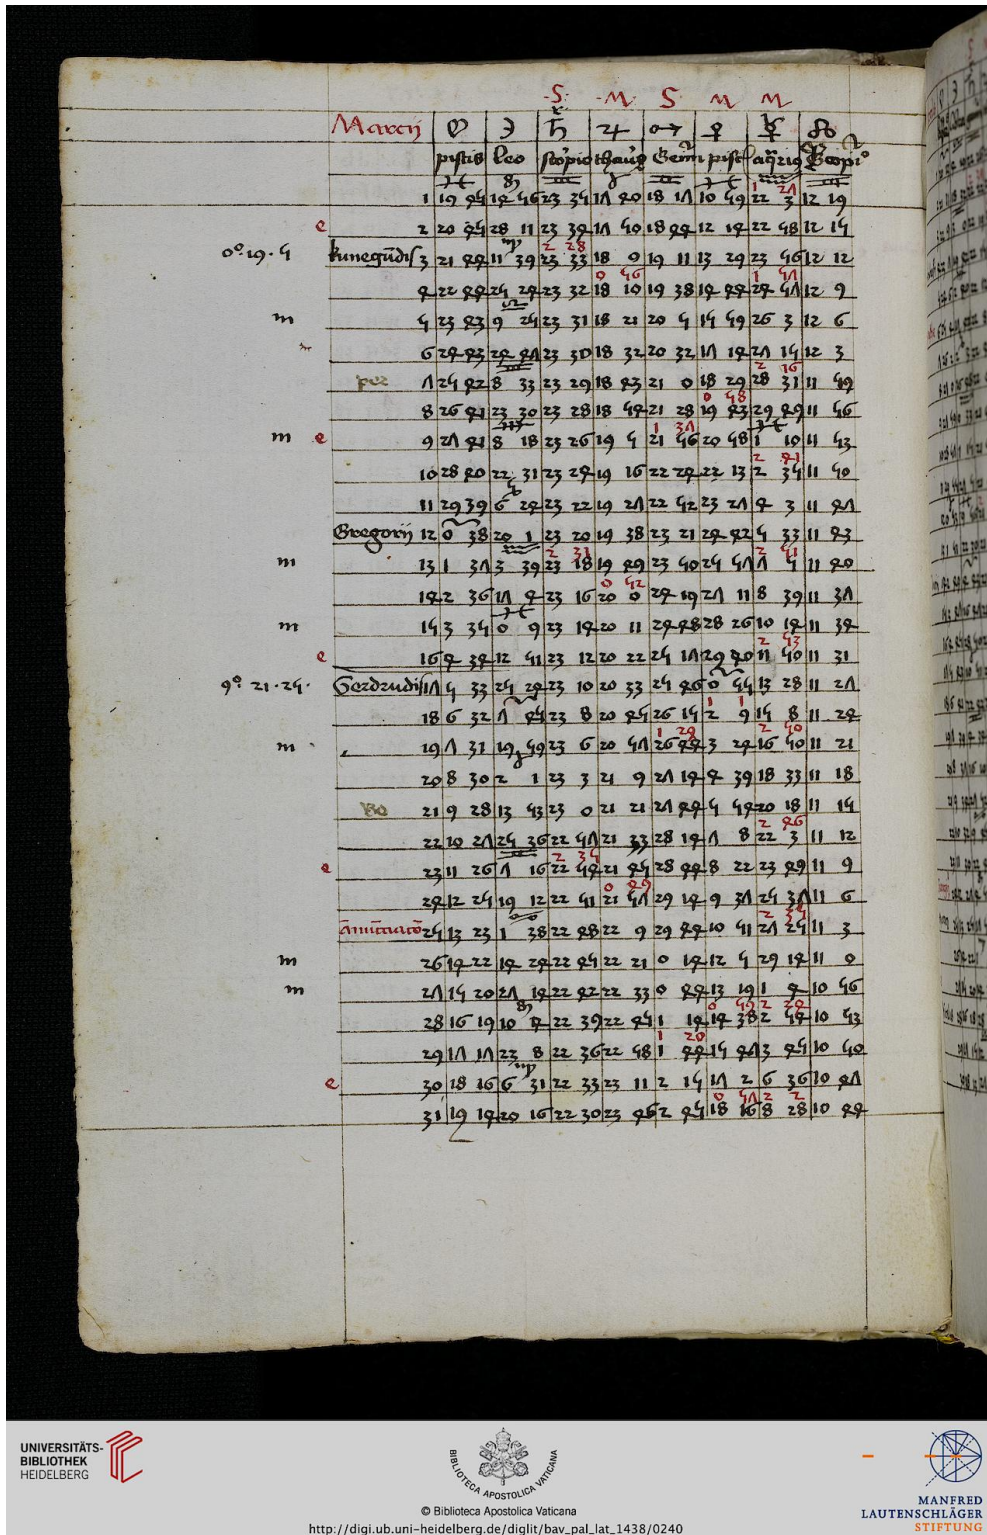 S M S M M
Marcij ☉ ☽ ♄ ♃ ♂ ♀ ☿ ☊
piscis leo scorpio thaur9 Gemini pisc aqrio Scorpio
♓ ♌ ♏ ♉ ♊ ♓ ♒ ♏
1 27
1 19 45 14 56 23 35 17 40 18 17 10 59 22 3 12 19
e 2 20 45 28 11 23 34 17 50 18 44 12 14 22 58 12 15
♍ 2 28
0° 19 · 5 kunegudis 3 21 44 11 39 23 33 18 0 19 11 13 29 23 56 12 12
0 56 1 57
4 22 44 25 24 23 32 18 10 19 38 14 44 24 57 12 9
♎
m 5 23 43 9 25 23 31 18 21 20 5 15 59 26 3 12 6
m 6 24 43 24 47 23 30 18 32 20 32 17 14 27 15 12 3
♏ 2 16
per 7 25 42 8 33 23 29 18 43 21 0 18 29 28 31 11 59
0 58
8 26 41 23 30 23 28 18 54 21 28 19 43 29 49 11 56
♐ 1 37 ♓
m e 9 27 41 8 18 23 26 19 5 21 56 20 58 1 10 11 53
2 41
10 28 40 22 31 23 24 19 16 22 24 22 13 2 35 11 50
♑
11 29 39 6 24 23 22 19 27 22 52 23 27 4 3 11 47
♈
Gregorij 12 0 38 20 1 23 20 19 38 23 21 24 42 5 33 11 43
♒ 2 31 2 51
m 13 1 37 3 39 23 18 19 49 23 50 25 57 7 5 11 40
0 52
14 2 36 17 4 23 16 20 0 24 19 27 11 8 39 11 37
♓
m 15 3 35 0 9 23 14 20 11 24 48 28 26 10 14 11 34
2 53
e 16 4 34 12 51 23 12 20 22 25 17 29 40 11 50 11 31
♈
9° 21 · 25 · Gerdrudis 17 5 33 25 24 23 10 20 33 25 46 0 55 13 28 11 27
♈ 1 1
18 6 32 7 45 23 8 20 45 26 15 2 9 15 8 11 24
1 29 2 50
m 19 7 31 19 59 23 6 20 57 26 44 3 24 16 50 11 21
♉
20 8 30 2 1 23 3 21 9 27 14 4 39 18 33 11 18
21 9 28 13 53 23 0 21 21 27 44 5 54 20 18 11 15
2 46
22 10 27 25 36 22 57 21 33 28 14 7 8 22 3 11 12
♊ 2 35
e 23 11 26 7 16 22 54 21 45 28 44 8 22 23 49 11 9
0 49
24 12 25 19 12 22 51 21 57 29 14 9 37 25 37 11 6
♋ 2 34
Annunciaco 25 13 23 1 38 22 48 22 9 29 44 10 51 27 25 11 3
m 26 14 22 14 24 22 45 22 21 0 14 12 5 29 14 11 0
m 27 15 20 27 14 22 42 22 33 0 44 13 19 1 4 10 56
♌ 0 59 2 24
28 16 19 10 4 22 39 22 45 1 14 14 38 2 54 10 53
1 20
29 17 17 23 8 22 36 22 58 1 44 15 47 3 45 10 50
♍
e 30 18 16 6 31 22 33 23 11 2 15 17 2 6 36 10 47
0 57 2 2
31 19 14 20 16 22 30 23 46 2 45 18 16 8 28 10 44
UNIVERSITÄTS-
BIBLIOTHEK
HEIDELBERG
BIBLIOTECA APOSTOLICA VATICANA
© Biblioteca Apostolica Vaticana
http://digi.ub.uni-heidelberg.de/diglit/bav_pal_lat_1438/0240
MANFRED
LAUTENSCHLÄGER
STIFTUNG